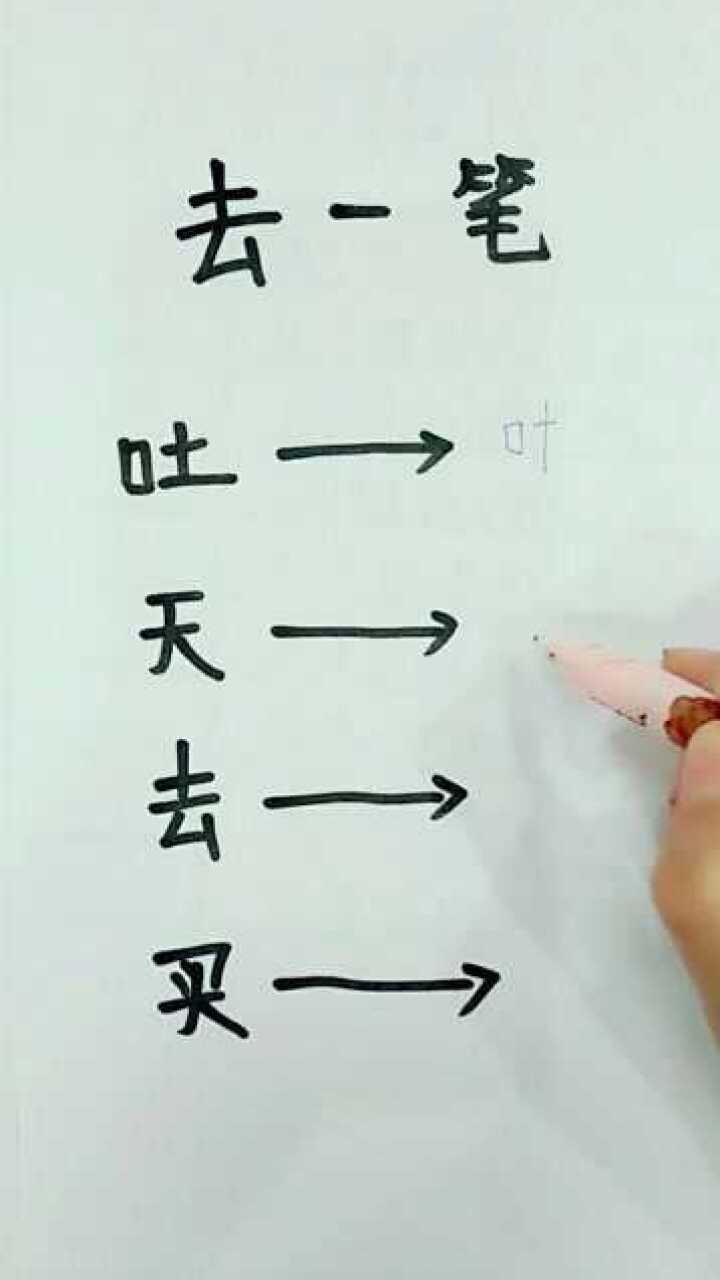 去一笔
吐 → 叶
天 →
去 →
买 →